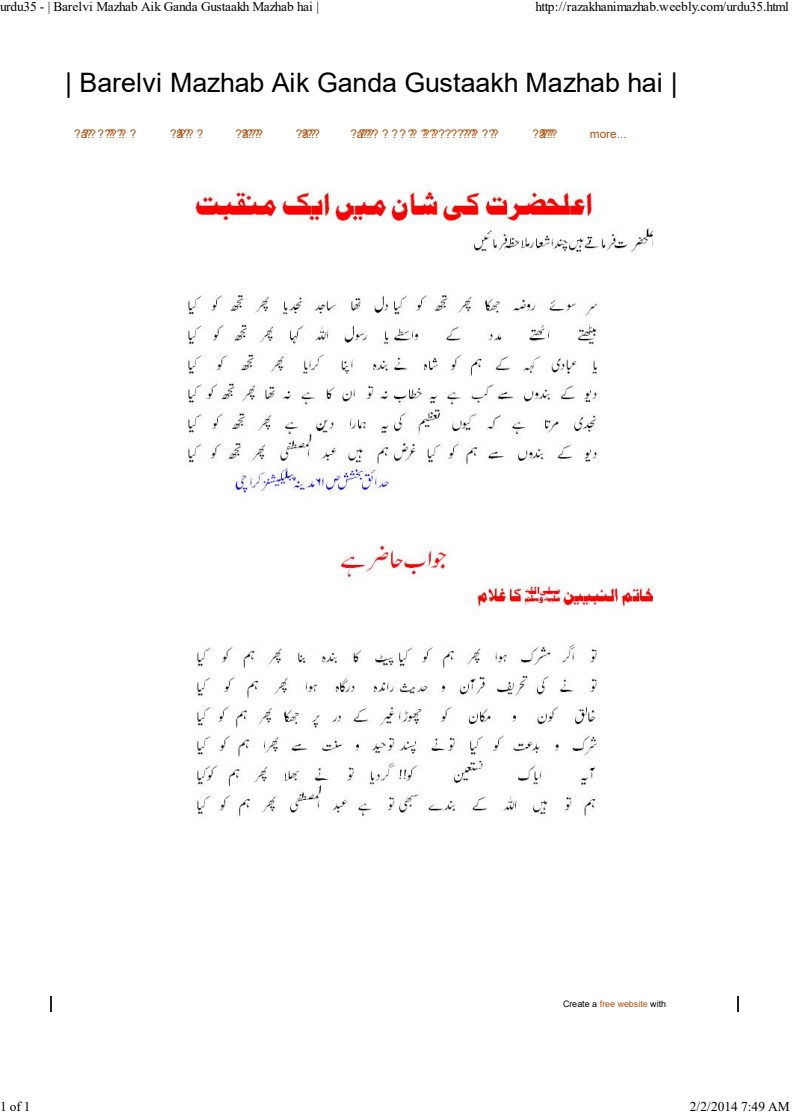 urdu35 - | Barelvi Mazhab Aik Ganda Gustaakh Mazhab hai |
http://razakhanimazhab.weebly.com/urdu35.html
| Barelvi Mazhab Aik Ganda Gustaakh Mazhab hai |
more...
اعلحضرت کی شان میں ایک منقبت
اعلحضرت فرماتے ہیں چند اشعار ملاحظہ فرمائیں
سر سوئے روضہ جھکا پھر تجھ کو کیا دل تھا ساجد نجدیا پھر تجھ کو کیا
بیٹھتے اٹھتے مدد کے واسطے یا رسول اللہ کہا پھر تجھ کو کیا
یا عبادی کہہ کے ہم کو شاہ نے بندہ اپنا کرلیا پھر تجھ کو کیا
دیو کے بندوں سے کب ہے یہ خطاب نہ تو ان کا ہے نہ تھا پھر تجھ کو کیا
نجدی مرتا ہے کہ کیوں تعظیم کی یہ ہمارا دین ہے پھر تجھ کو کیا
دیو کے بندوں سے ہم کو کیا غرض ہم ہیں عبد المصطفٰی پھر تجھ کو کیا
حدائق بخشش ص ۶۱ مدینہ پبلیکیشنز کراچی
جواب حاضر ہے
خاتم النبیین ﷺ کا غلام
تو اگر مشرک ہوا پھر ہم کو کیا پیٹ کا بندہ بنا پھر ہم کو کیا
تو نے کی تحریف قرآن و حدیث راندہ درگاہ ہوا پھر ہم کو کیا
خالق کون و مکان کو چھوڑا غیر کے در پر جھکا پھر ہم کو کیا
شرک و بدعت کو کیا تونے پسند توحید و سنت سے پھرا ہم کو کیا
آیہ ایاک نستعین کو!! گردیا تو نے بھلا پھر ہم کوکیا
ہم تو ہیں اللہ کے بندے سبھی تو ہے عبد المصطفٰی پھر ہم کو کیا
Create a free website with
1 of 1
2/2/2014 7:49 AM